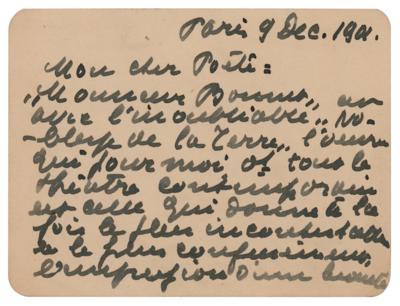 Paris 9 Dec. 1901.
Mon cher Poète =
"Monsieur Bonnet", est
avec l'inoubliable "No-
blesse de la Terre", l'œuvre
qui pour moi et tout le
théâtre contemporain
est celle qui donne à la
fois le plus incontestable
et le plus
l'impression d'une